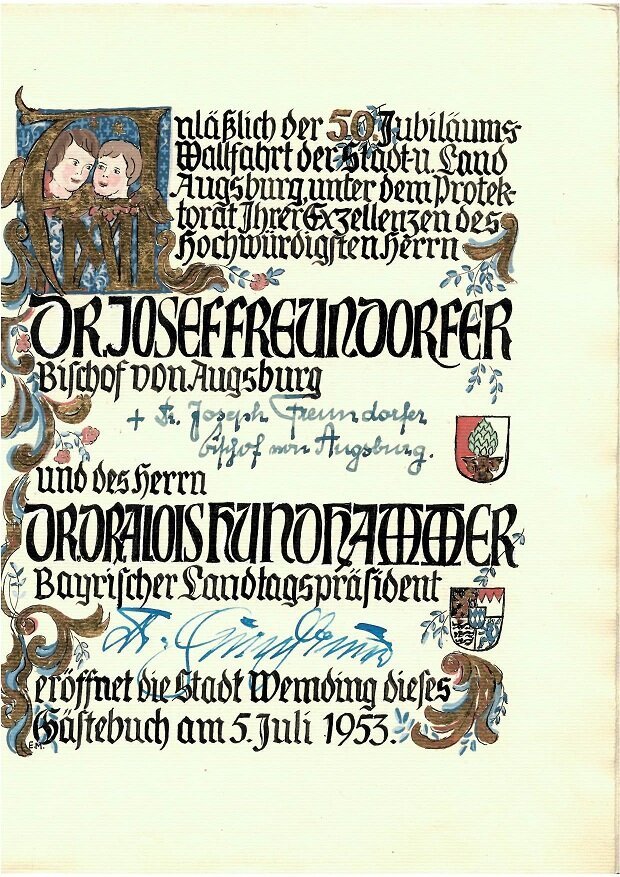 Anläßlich der 50. Jubiläums-
Wallfahrt der Stadt u. Land
Augsburg, unter dem Protek-
torat Ihrer Exzellenzen des
Hochwürdigsten Herrn
DR. JOSEF FREUNDORFER
Bischof von Augsburg
+ Dr. Joseph Freundorfer
Bischof von Augsburg.
und des Herrn
DR. DR. ALOIS HUNDHAMMER
Bayrischer Landtagspräsident
Dr. Hundhammer
eröffnet die Stadt Wemding dieses
Gästebuch am 5. Juli 1953.
E.M.